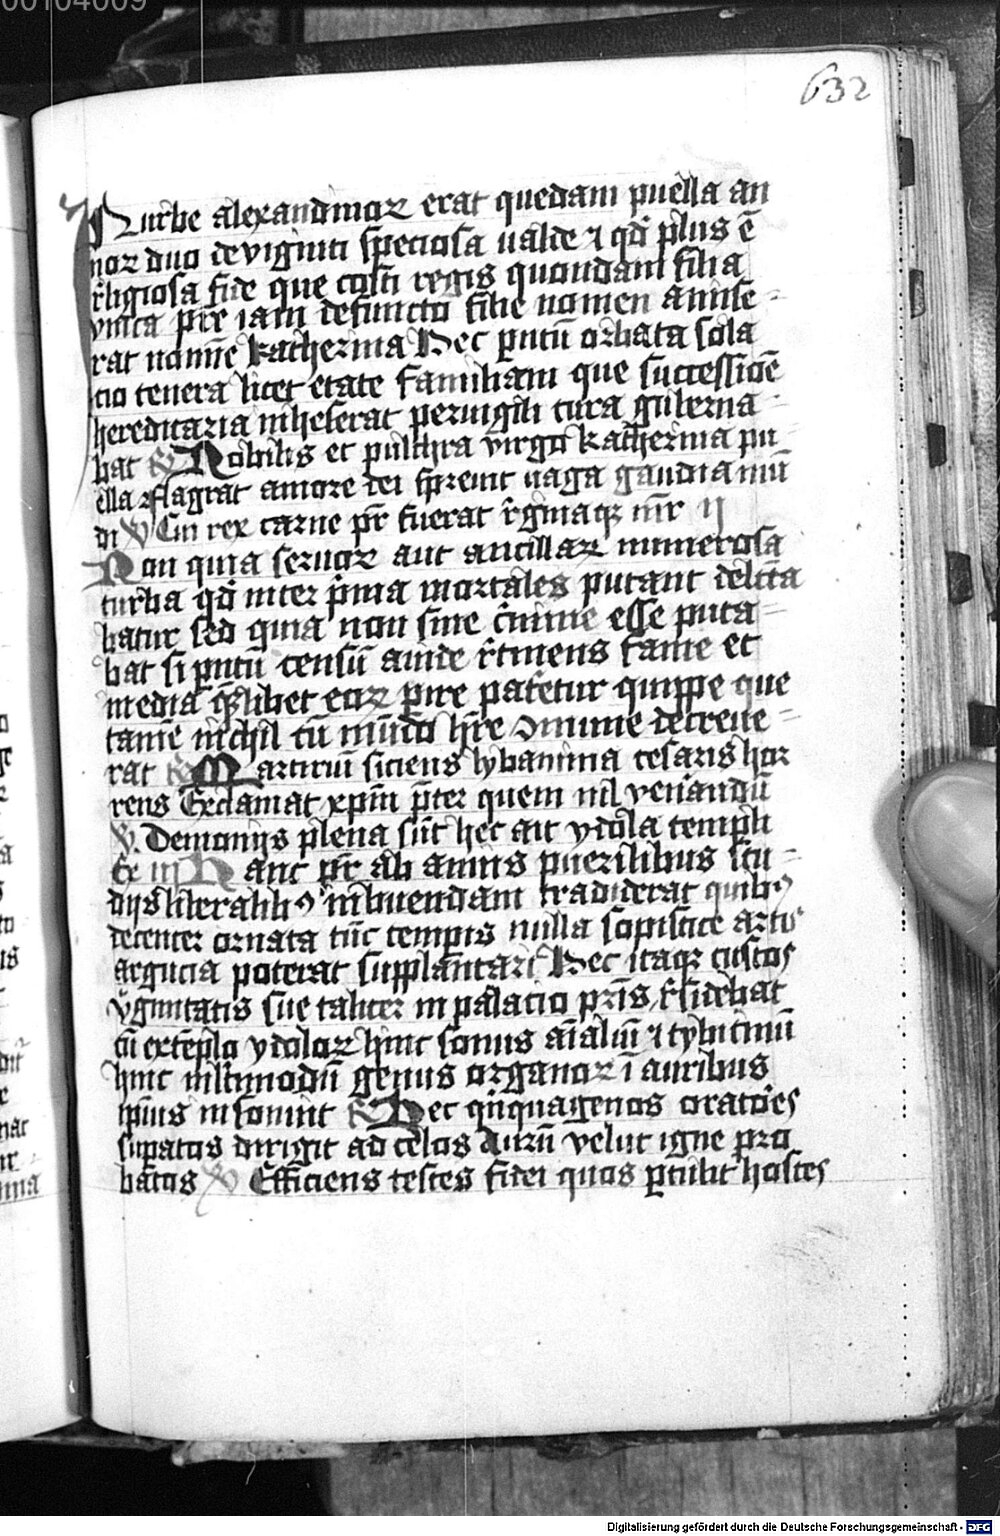 00104009
632
In urbe alexandrinoꝝ erat quedam puella an
noꝝ duo de viginti speciosa ualde ⁊ qđ plus ē
religiosa fide que costi regis quondam filia
vnica pre iam defuncto filie nomen amise-
rat nomīe katherina Hec pntū orbata sola
tio tenera licet etate familiam que successiōe
hereditaria inheserat peruigili cura guberna-
bat R Nobilis et pulchra virgo katherina pu-
ella ⁊flagrat amore dei spreuit uaga gaudia mū
di V Cui rex carne pr̄ fuerat r̄ginaqꝫ mr̄ ii
Non quia seruoꝝ aut ancillaꝝ numerosa
turba qđ inter p̄ma mortales putant delc̄ta
batur sed quia non sine c̄mine esse puta-
bat si pntū censū auide r̄tinens fame et
inedia q̄libet eoꝝ pire pateretur quippe que
tamē nichil cū mūdo hr̄e ⁊mune decreue-
rat R Martiriū siciens lybamina cesaris hor
rens Exclamat xpm̄ pter quem nil venādū
V. Demonijs plena sūt hec ait ydola templi
Lc̄ iii Hanc pr̄ ab annis puerilibus stu-
dijs literalibꝰ inbuendam tradiderat quibꝰ
decenter ornata tūc tempris nulla sopistice artis
argucia poterat supplantari Hec itaqꝫ custos
v̄ginitatis sue taliter in palacio pr̄is r̄sidebat
cū extēplo ydoloꝝ hinc sonus aīaliū ⁊ tybicinū
hinc m̄ltimodū genus organoꝝ ī auribus
ipius insonuit R Hec qīquagenos oratoēs
supatos dirigit ad celos Aurū velut igne pro
batos V Efficiens testes fidei quos ptulit hostes
Digitalisierung gefördert durch die Deutsche Forschungsgemeinschaft - DFG